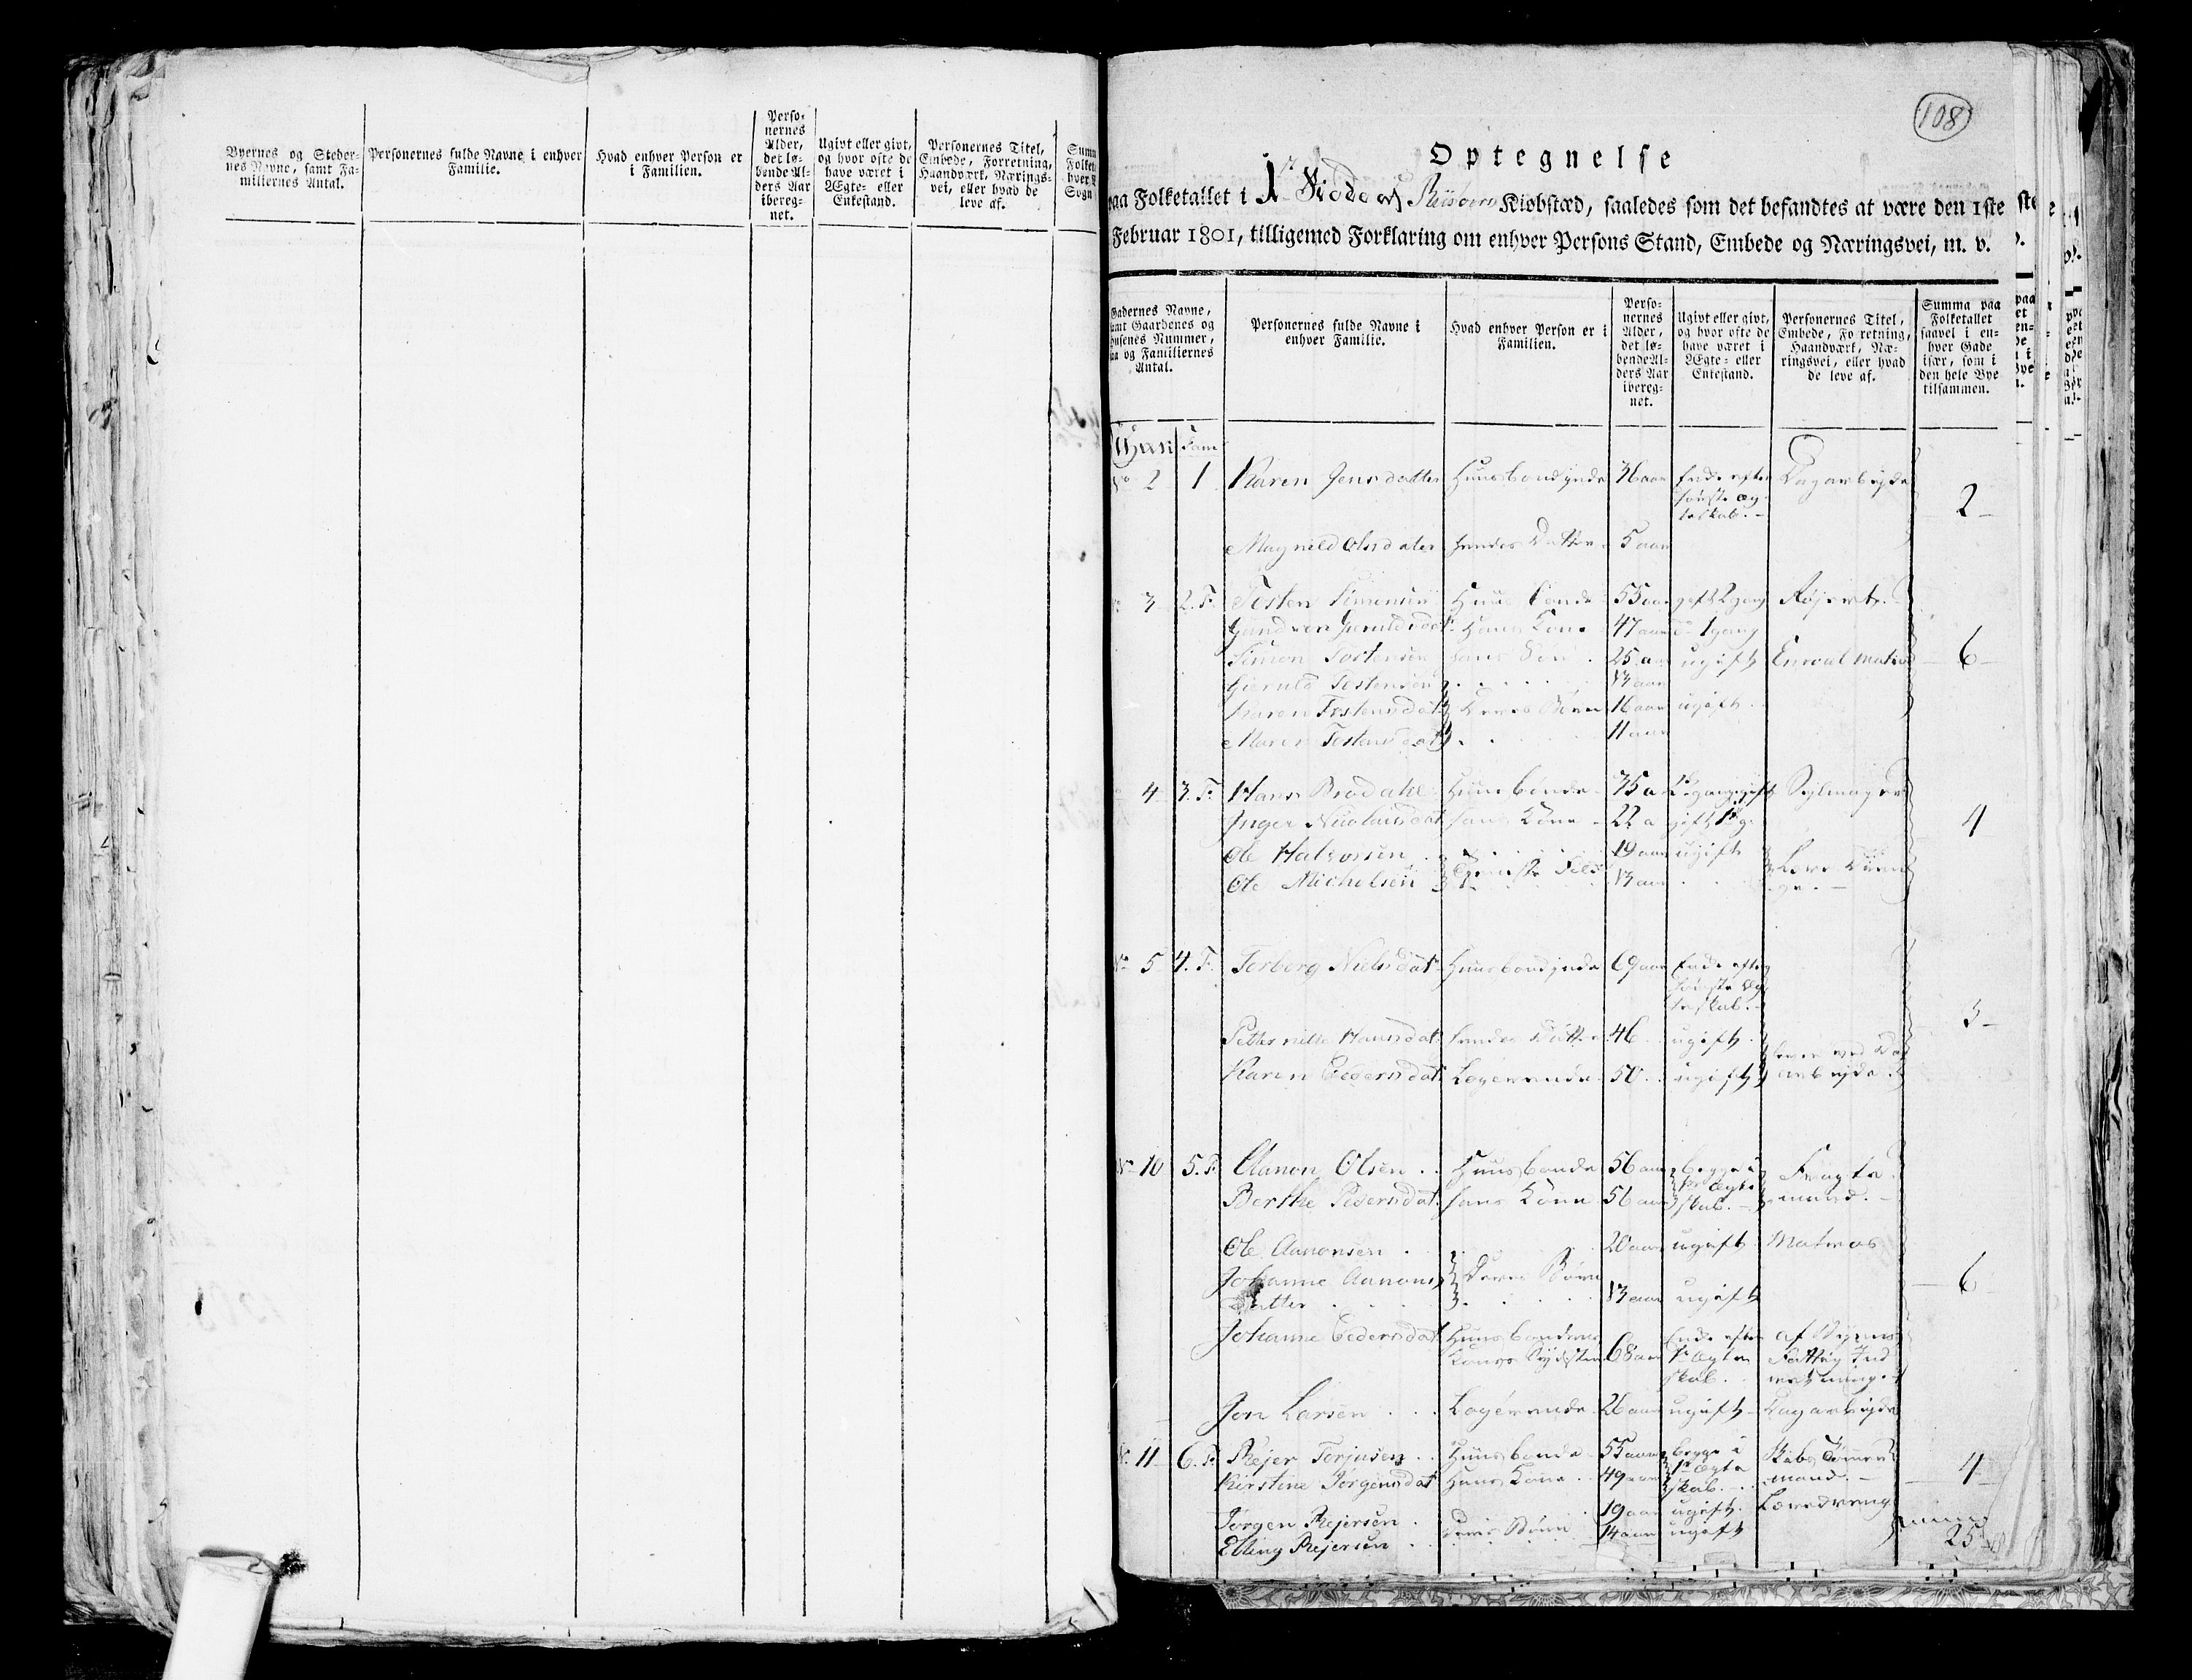 Byernes og Steder-
nes Navne, samt Fa-
miliernes Antal.
Personernes fulde Navne i enhver
Familie.
Hvad enhver Person er
i Familien.
Perso-
nernes
Alder,
det lø-
bende Al-
ders Aar
ibereg-
net.
Ugivt eller givt,
og hvor ofte de
have været i
Ægte- eller
Enkestand.
Personernes Titel,
Embede, Forretning,
Haandværk, Nærings-
vei, eller hvad de
leve af.
108
Optegnelse
paa Folketallet i 1 Riisøers Kiøbstæd, saaledes som det befandtes at være den 1ste
Februar 1801, tilligemed Forklaring om enhver Persons Stand, Embede og Næringsvei, m. v.
Gadernes Navne,
samt Gaardenes og
Husenes Nummer,
og Familiernes
Antal.
Personernes fulde Navne i
enhver Familie.
Hvad enhver Person er i
Familien.
Perso-
nernes
Alder,
det lø-
bende Al-
ders Aar
ibereg-
net.
Ugivt eller givt,
og hvor ofte de
have været i
Ægte- eller
Enkestand.
Personernes Titel,
Embede, Forretning,
Haandværk, Næ-
ringsvei, eller hvad
de leve af.
Summa paa
Folketallet
saavel i en-
hver Gade
især, som i
den hele Bye
tilsammen.
Fam
2 1 Karen Jensdatter Huusbondinde 36 aar Enke efter Dagarbeyde
første Æg-
teskab. 2
Magnild Olsdater hendes Datter 5 aar
3 2. F. Tosten Simensen Huusbonde 55 aar gift 2 gang
47 aar 1 gang
Simon Tostensen hans Søn 25 aar ugift Enroul Matros 6
Tostensen 13 aar
Karen Tostensdat Deres Børn 16 aar ugift
Maren Tostensdat 11 aar
4 3. F. Hans Brodahl Huusbonde 35 a Sejlmager
Inger Nicolaisdat hans Kone 22 a 4
Ole Halvorsen 19 aar ugift
Ole Michelsen Tieniste Folk 13 aar Lære Dren
ge.
No 5 4. F. Torborg Nielsdat Huusbondinde 69 aar Enke efter
første Æg
teskab. 3
Petternille Hansdat hendes Datter 46 ugift
Karen Pedersdat Logerende 50 ugift lever ved Da
arbeyde.
No 10 5. F. Aanon Olsen Huusbonde 56 aar begge i Fragte
Berthe Pedersdat hans Kone 56 aar 1te Ægte mand.
skab.
Ole Aanonsen 20 aar ugift Matros
Johanne Aanons Deres Børn
Datter 13 aar ugift 6
Johanne Pedersdat Huusbondens Enke efter af Byens
Kones Syster 68 aar 1te Ægte Fattig Ind
skab. retning
Jon Larsen Logerende 26 aar ugift Dagarbeyde
No 11 6. F. Rejer Terjusen Huusbonde 55 aar begge i Skibs Tømmer
Kirstine Jørgensdat Hans Kone 49 aar 1te Ægte mand. 4
skab.
Jørgen Rejersen Deres Børn 19 aar ugift Læredreng
Elling Rejersen 14 aar ugift
25